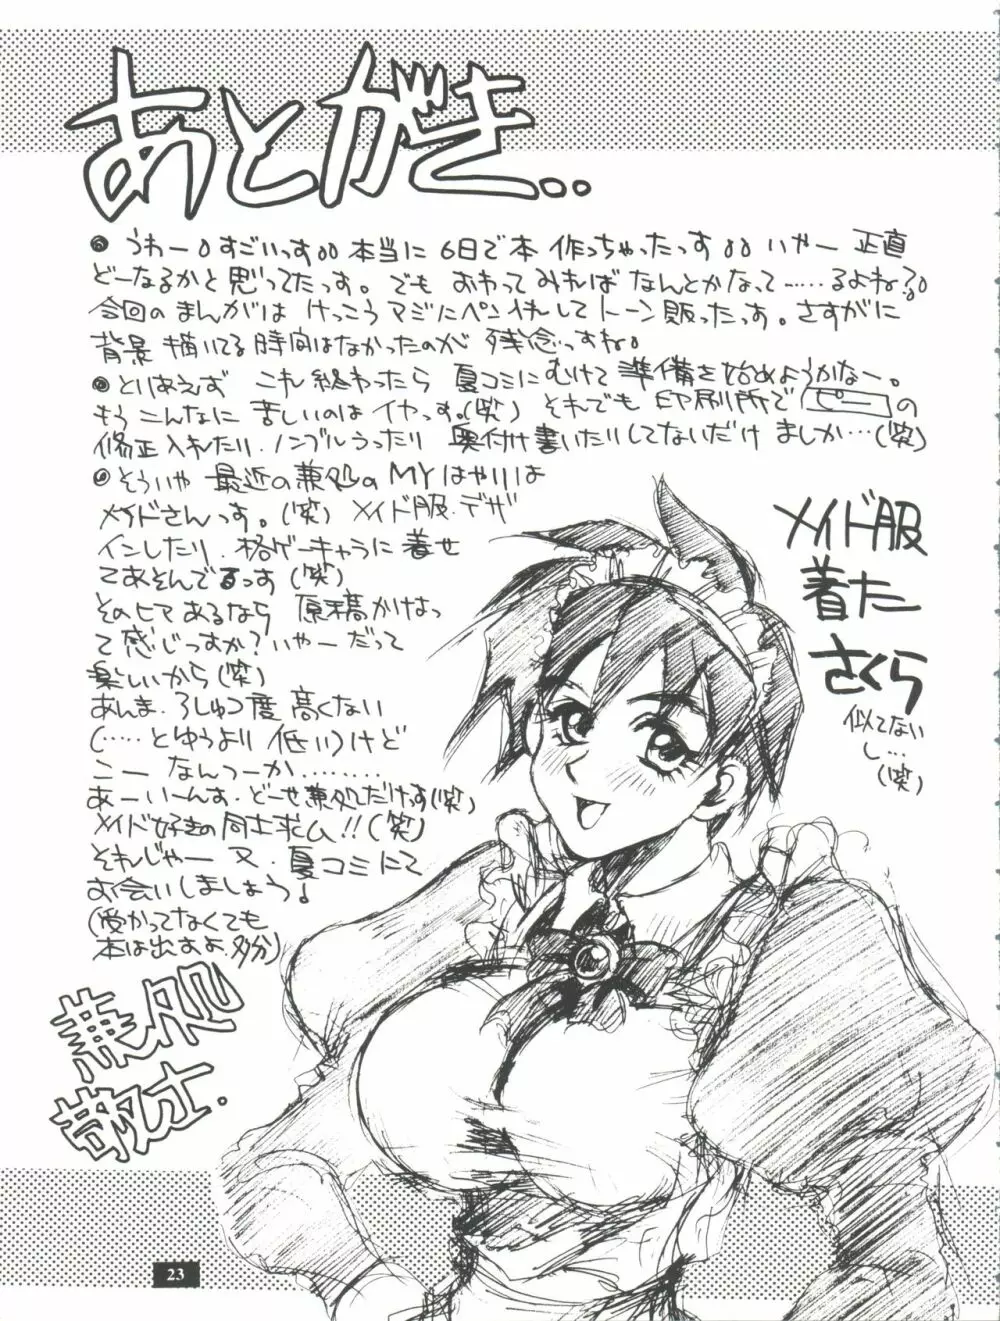 あとがき..
● うわー。すごいっす。。本当に 6日で本 作っちゃったっす。。 いやー 正直
どーなるかと思ってたっす。でも おわってみれば なんとかなって……るよね?。
今回のまんがは けっこうマジにペン入れして トーン貼ったっす。さすがに
背景 描いてる時間はなかったのが 残念っすね。
● とりあえず これ終わったら 夏コミにむけて 準備を始めようかなー。
もうこんなに苦しいのはイヤっす。(笑) それでも 印刷所で ピー の
修正入れたり.ノンブルうったり 奥付け書いたりしてないだけ ましか…(笑)
● そういや 最近の兼処の MYはやりは
メイドさんっす。(笑) メイド服.デザ
インしたり.格ゲーキャラに着せ
てあそんでるっす(笑)
そのヒマあるなら 原稿かけよっ
て感じっすか? いやーだって
楽しいから(笑)
あんま.ろしゅつ度 高くない
(……とゆうより 低い)けど
こー なんつーか………
あーいーんす.どーせ兼処だけっす(笑)
メイド好きの同士求ム!!(笑)
それじゃー 又.夏コミにて
お会いしましょう!
(受かってなくても
本は出すよ 多分)
兼処
敬士.
メイド服
着た
さくら
似てない
し…
(笑)
23